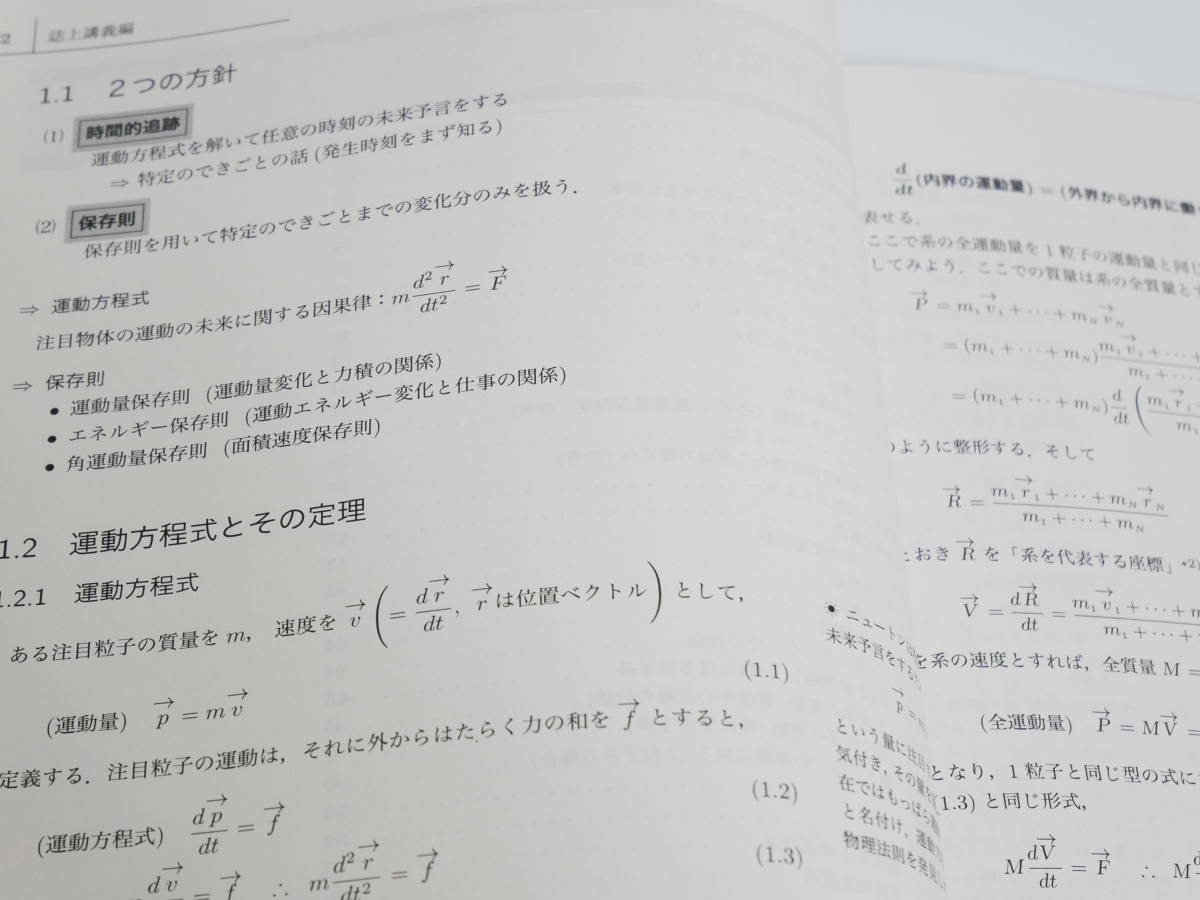 2 誌上講義編
1.1 2つの方針
(1) 時間的追跡
運動方程式を解いて任意の時刻の未来予言をする
⇒ 特定のできごとの話 (発生時刻をまず知る)
(2) 保存則
保存則を用いて特定のできごとまでの変化分のみを扱う.
⇒ 運動方程式
注目物体の運動の未来に関する因果律：m d²r→/dt² = F→
⇒ 保存則
• 運動量保存則 (運動量変化と力積の関係)
• エネルギー保存則 (運動エネルギー変化と仕事の関係)
• 角運動量保存則 (面積速度保存則)
1.2 運動方程式とその定理
1.2.1 運動方程式
ある注目粒子の質量を m, 速度を v→ (= dr→/dt, r→ は位置ベクトル) として,
(運動量) p→ = mv→ (1.1)
定義する. 注目粒子の運動は, それに外からはたらく力の和を f→ とすると,
(運動方程式) dp→/dt = f→ (1.2)
dv→ = f→ ∴ m d²r→/dt² = f→ (1.3)
d/dt (内界の運動量) = (外界から内界に働
表せる.
ここで系の全運動量を 1 粒子の運動量と同じ
してみよう. ここでの質量は系の全質量とす
P→ = m₁v→₁ + ··· + m_N v→_N
= (m₁ + ··· + m_N) m₁v→₁ + ··· / m₁ + ···
= (m₁ + ··· + m_N) d/dt ( m₁r→₁ + / m₁
のように整形する. そして
R→ = m₁r→₁ + ··· + m_N r→_N / m₁ + ··· + m_N
とおき R→ を「系を代表する座標」*2)
V→ = dR→/dt = m₁v→₁ + ··· + m / m₁ + ··· +
を系の速度とすれば, 全質量 M =
(全運動量) P→ = MV→ =
となり, 1 粒子と同じ型の式に
(1.3) と同じ形式,
M dV→/dt = F→ ∴ M
ニュートン
未来予言をする
p→ = m
という量に注目
気付き, その量を
在ではもっぱら
と名付け, 運動
物理法則を発見し